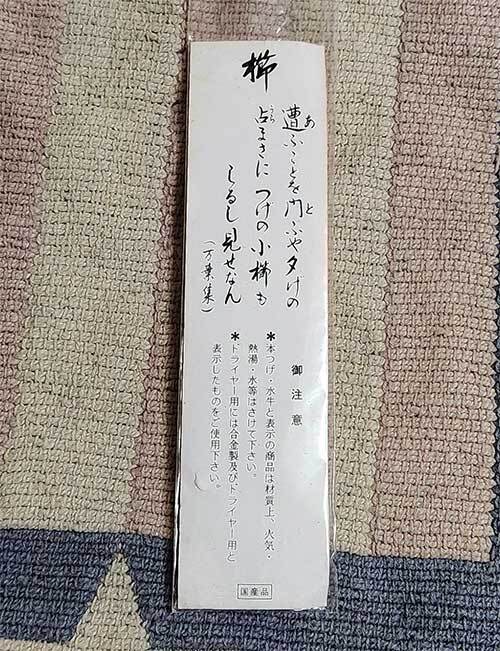 櫛
遭ふことを問ふや夕げの
占まさに つげの小櫛も
しるし見せなん
(万葉集)
御注意
*本つげ・水牛と表示の商品は材質上、火気・
熱湯・水等はさけて下さい。
*ドライヤー用には合金製及びドライヤー用と
表示したものをご使用下さい。
国産品